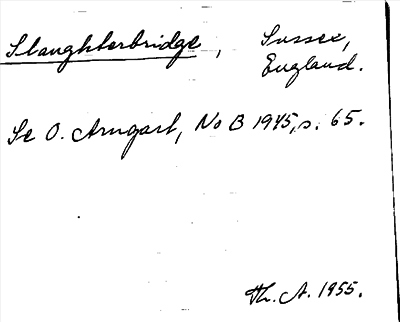 Slaughterbridge, Sussex,
England.
Se O. Arngart, NoB 1945, s. 65.
Th. A. 1955.